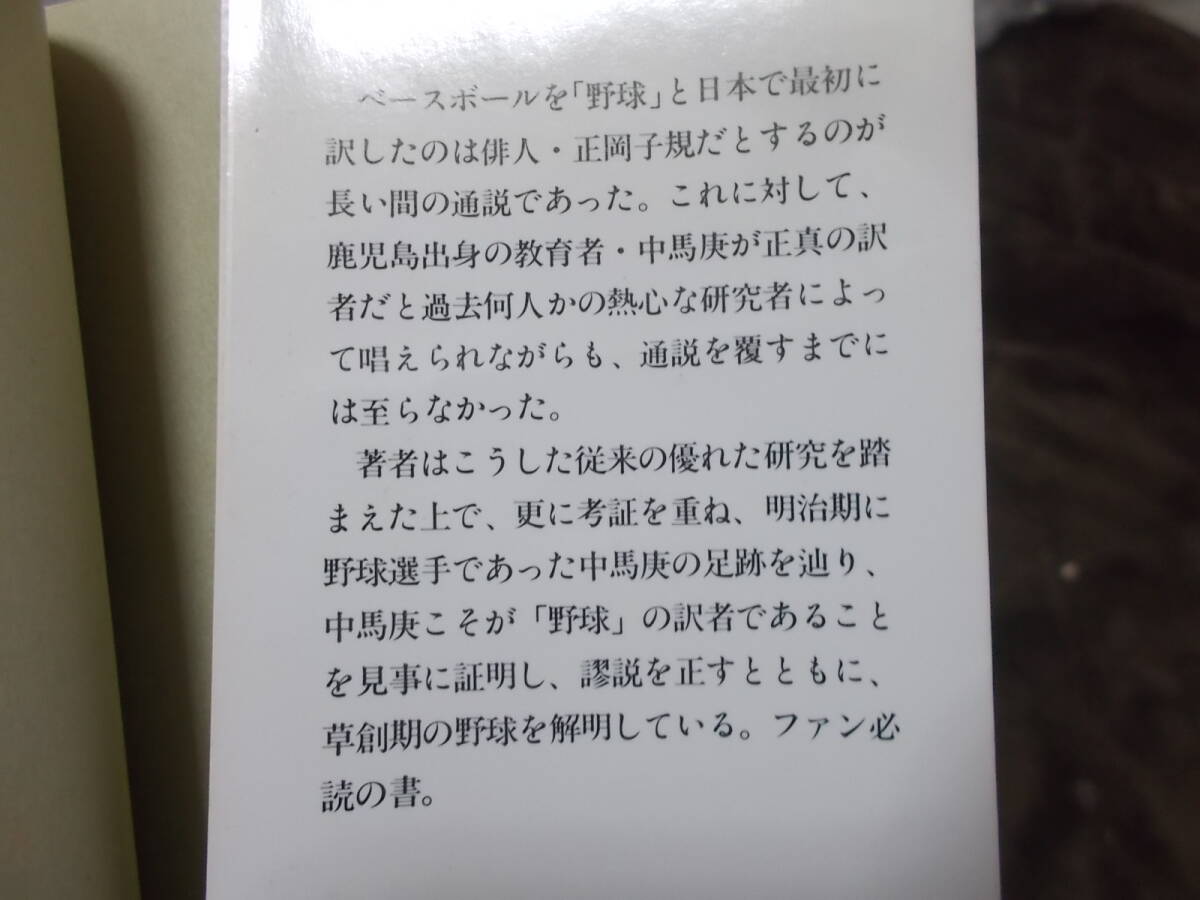 ベースボールを「野球」と日本で最初に
訳したのは俳人・正岡子規だとするのが
長い間の通説であった。これに対して、
鹿児島出身の教育者・中馬庚が正真の訳
者だと過去何人かの熱心な研究者によっ
て唱えられながらも、通説を覆すまでに
は至らなかった。
著者はこうした従来の優れた研究を踏
まえた上で、更に考証を重ね、明治期に
野球選手であった中馬庚の足跡を辿り、
中馬庚こそが「野球」の訳者であること
を見事に証明し、謬説を正すとともに、
草創期の野球を解明している。ファン必
読の書。